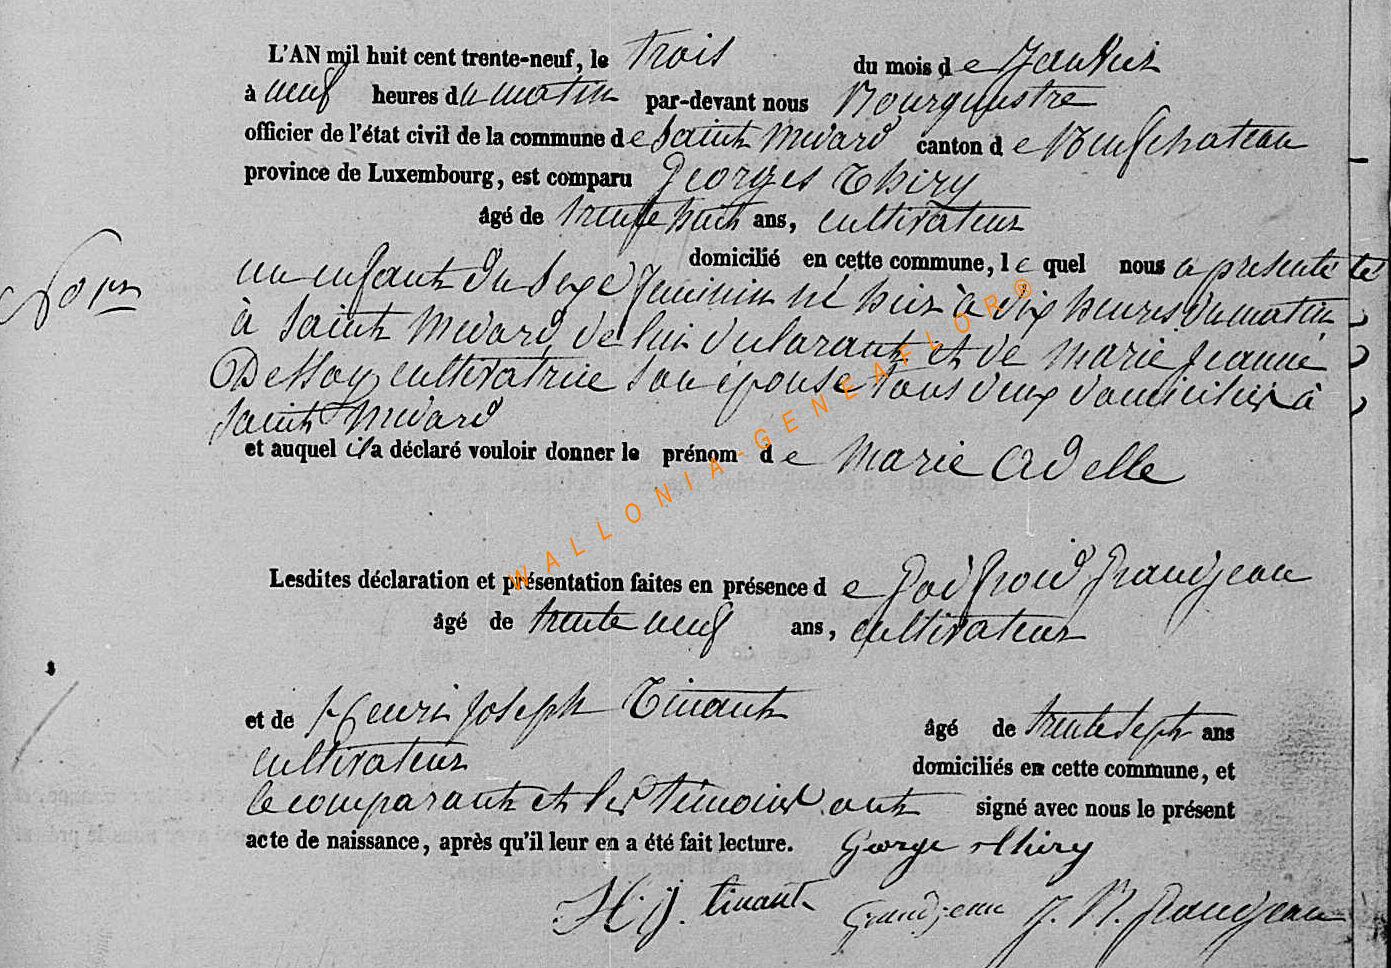 L'AN mil huit cent trente-neuf, le trois du mois de Janvier
à neuf heures du matin par-devant nous Bourguestre
officier de l'état civil de la commune de Saint Médard canton de Neufchateau
province de Luxembourg, est comparu Georges Thiry
âgé de trente huit ans, cultivateur
domicilié en cette commune, lequel nous a présenté
un enfant du sexe féminin né hier à dix heures du matin
à Saint Médard, de lui déclarant et de Marie Jeanne
Dessoy cultivatrice son épouse tous deux domiciliés à
Saint Médard
et auquel il a déclaré vouloir donner le prénom de Marie Adelle
Lesdites déclaration et présentation faites en présence de Godfroid Grandjean
âgé de trente neuf ans, cultivateur
et de Henri Joseph Tinant âgé de trente sept ans
cultivateur domiciliés en cette commune, et
le comparant et les témoins ont signé avec nous le présent
acte de naissance, après qu'il leur en a été fait lecture. George thiry
H. J. tinant Grandjean J. N. Grandjean
WALLONIA-GENEAFLOR®